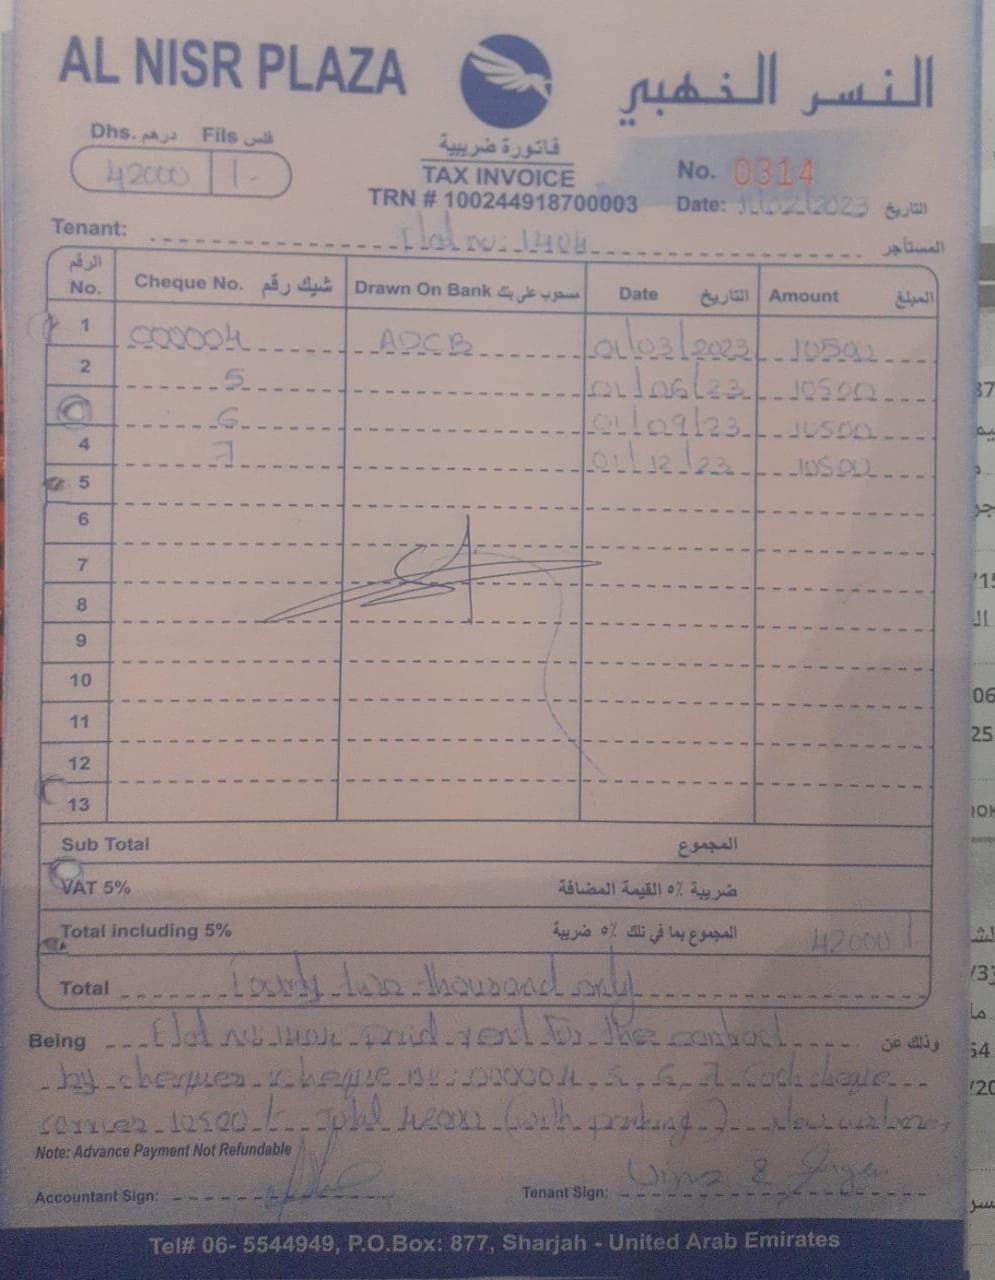 AL NISR PLAZA
النسر الذهبي
Dhs. درهم Fils فلس
42000 /-
فاتورة ضريبية
TAX INVOICE
TRN # 100244918700003
No. 0314
Date: /02/2023 التاريخ
Tenant: Flat no: 1404 المستأجر
الرقم No. Cheque No. شيك رقم Drawn On Bank مسحوب على بنك Date التاريخ Amount المبلغ
1 000004 ADCB 01/03/2023 10500
2 5 01/06/23 10500
6 01/09/23 10500
4 7 01/12/23 10500
5
6
7
8
9
10
11
12
13
Sub Total المجموع
VAT 5% ضريبة ٥٪ القيمة المضافة
Total including 5% المجموع بما في ذلك ٥٪ ضريبة 42000/-
Total Fourty two thousand only
Being Flat no 1404 paid rent for the contract وذلك عن
by cheques cheque no: 000004, 5, 6, 7 Each cheque
carries 10500/- Total 42000 (with parking)
Note: Advance Payment Not Refundable
Accountant Sign: Tenant Sign:
Tel# 06- 5544949, P.O.Box: 877, Sharjah - United Arab Emirates